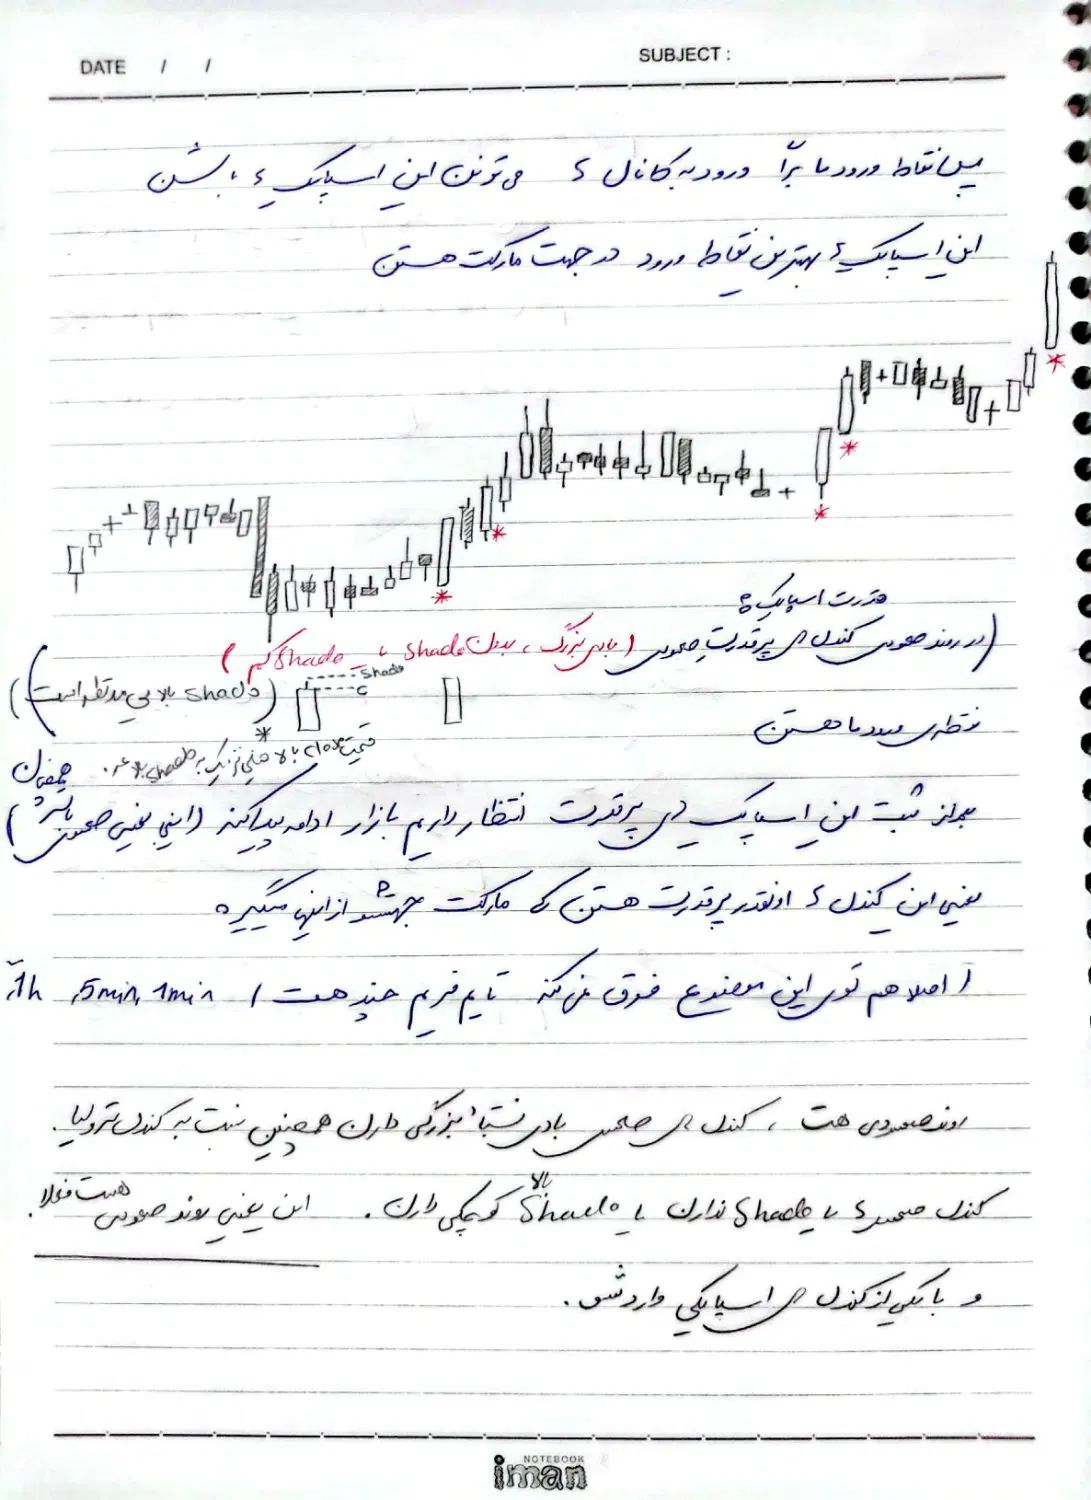 DATE / /
SUBJECT :
پس نقاط ورود ما برا ورود به کانال ء می تونن این اسپایک ء باشن
این اسپایک ء بهترین نقاط ورود در جهت مارکت هستن
قدرت اسپایک ه
(در روند صعودی کندل های پرقدرت صعودی (بادی بزرگ ، بدون Shado یا Shado کم)
Shado
c
(Shado بالایی مد نظر است)
نقطه ی ورود ما هستن
* قیمت close بالا خیلی نزدیک به Shado بالا
بعد از ثبت این اسپایک های پرقدرت انتظار داریم بازار ادامه پیدا کند (اینجا یعنی صعودی باشه)
یعنی این کندل ء اونقدر پرقدرت هستن که مارکت جهتشو از اینها میگیره
(اصلا هم توی این موضوع فرق نمی کنه تایم فریم چند هست) 1h ,5min, 1min
روند صعودی هست ، کندل های صعودی بادی نسبتاً بزرگی دارن همچنین نسبت به کندل نزولیا.
کندل صعودی ء یا Shado ندارن یا Shado بالا کوچیکی دارن . این یعنی روند صعودی هست فعلا.
و با یکی از کندل های اسپایکی وارد شو .
NOTEBOOK
iman